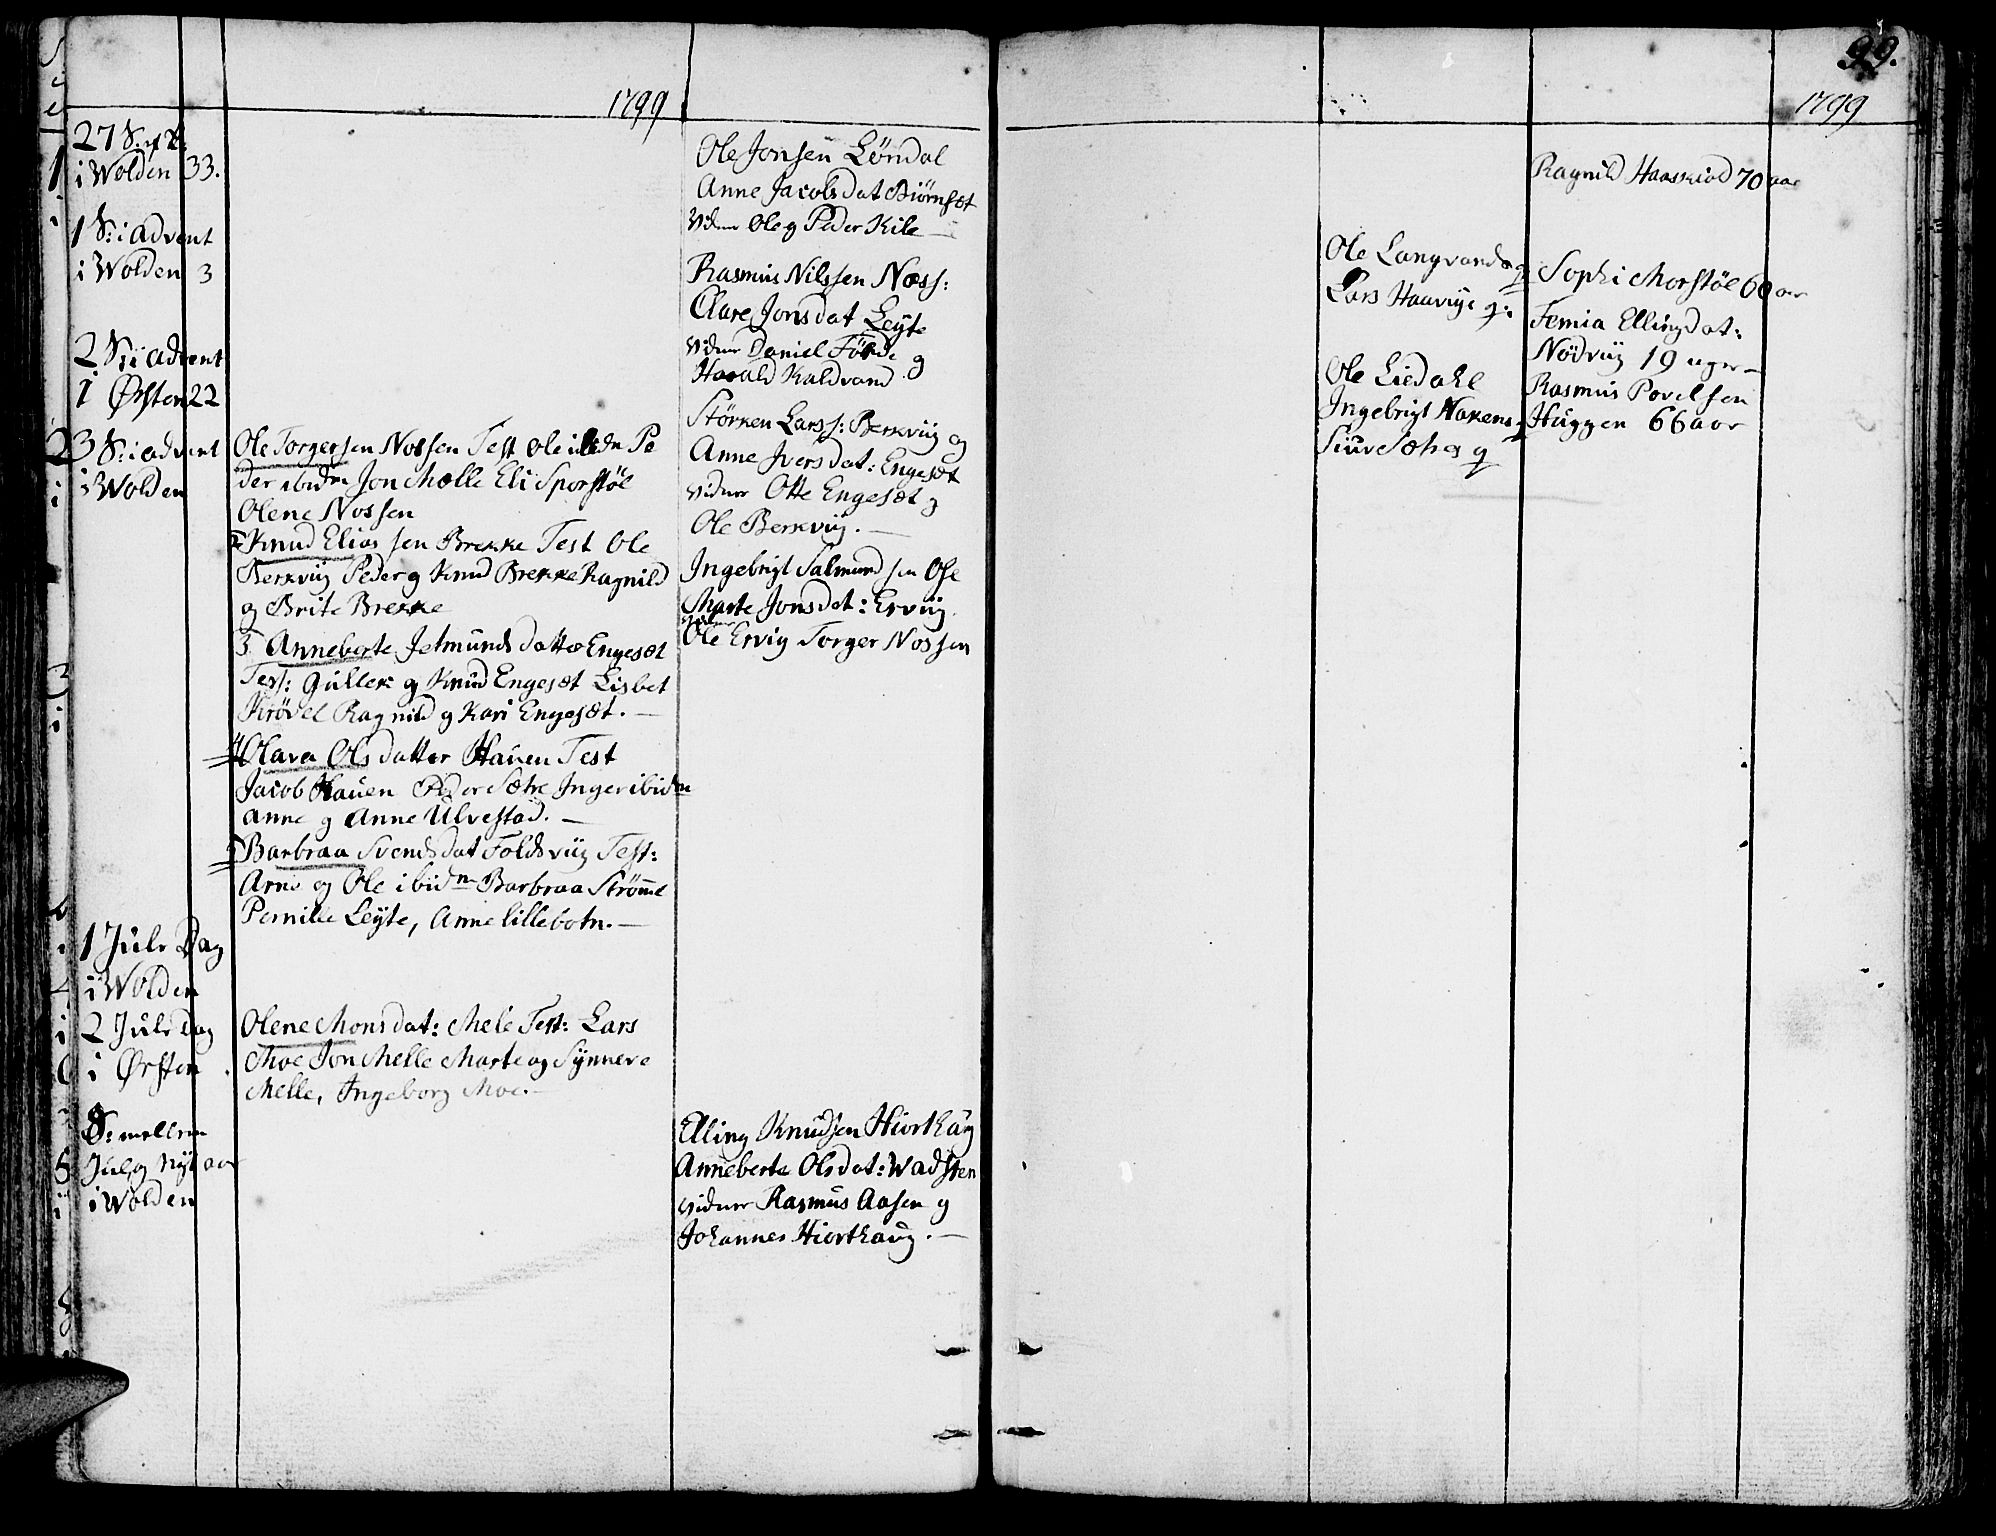 1799
27 S: e Tr:
i Wolden 33.
1 S: i Advent
i Wolden 3
2 S: i Advent
i Ørsten 22
3 S: i advent
i Wolden
1 Jule Dag
i Wolden
2 Jule Dag
i Ørsten
S: mellem
Jul og Nyt aar
i Wolden
Ole Torgersen Nossen Test Ole ibidm Pe
der ibidm Jon Melle Eli Sporstøl
Olene Nossen
2 Knud Elias sen Brekke Test Ole
Berkviig Peder og Knud Brekke Ragnild
og Brite Brekke
3 Anneberte Jetmunds datter Engeset
Test: Gullek og Knud Engeset Lisbet
Krøvel Ragnild og Kari Engeset. —
4 Olava Olsdatter Hauen Test
Jacob Hauen Peder Sætre Inger ibidm
Anne og Anne Ulvestad. —
5 Barbraa Svendsdat Foldsviig Test:
Arne og Ole ibidm Barbraa Strømme
Pernille Leyte, Anne Lillebotn. —
Olene Monsdat: Mele Test: Lars
Moe Jon Melle Marte og Synneve
Melle, Ingeborg Moe. —
Ole Jonsen Løndal
Anne Jacobsdat Biørnset
Vidner Ole og Peder Kile —
Rasmus Nilssen Næss:
Clare Jonsdat Leyte
vidner Daniel Førde og
Harald Kaldvand
Størken Larss: Berkviig og
Anne Iversdat: Engeset
vidner Otte Engeset og
Ole Berkviig. —
Ingebrigt Salmund sen Ose
Marte Jonsdat: Erviig
vidner
Ole Ervig Torger Nossen
Elling Knudsen Hiorthaug
Anneberte Olsdat: Wadsten
vidner Rasmus Aasen og
Johannes Hiorthaug. —
99.
1799
Ole Langvand og
Lars Haaviye g:
Ole Liedahl
Ingebrigt Nakens
Siur Sæther g
Ragnild Haaskiod 70 aar
Sophi Morstøl 60 aar
Femia Ellingdat:
Nödviig 19 uger —
Rasmus Povelsen
Huggen 66 aar